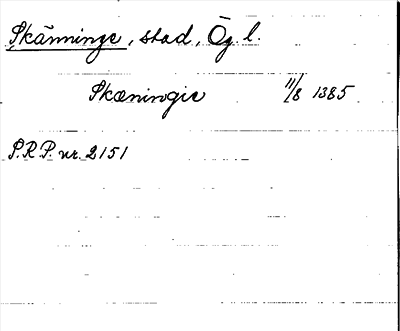 Skänninge, stad, Ög. l.
Skæningie 11/8 1385
S.R.P. nr. 2151